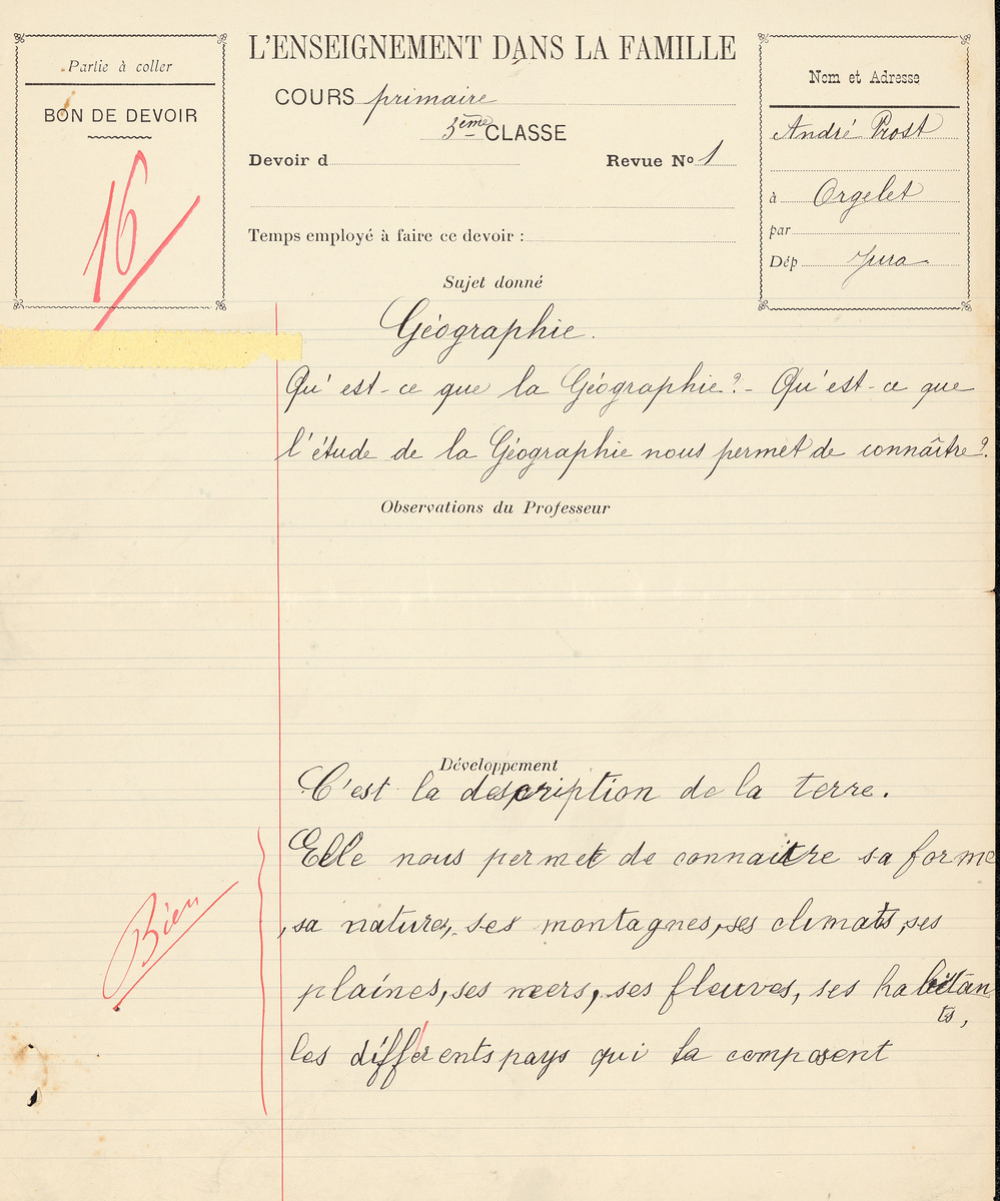 Partie à coller
BON DE DEVOIR
16
L'ENSEIGNEMENT DANS LA FAMILLE
COURS primaire
3ème CLASSE
Devoir d
Revue Nº 1
Temps employé à faire ce devoir :
Nom et Adresse
André Prost
à Orgelet
par
Dép Jura
Sujet donné
Géographie.
Qu'est-ce que la Géographie? - Qu'est-ce que
l'étude de la Géographie nous permet de connaître?
Observations du Professeur
Développement
C'est la description de la terre.
Elle nous permet de connaitre sa forme
, sa nature, ses montagnes, ses climats, ses
plaines, ses mers, ses fleuves, ses habitan
ts,
les différents pays qui la composent
Bien